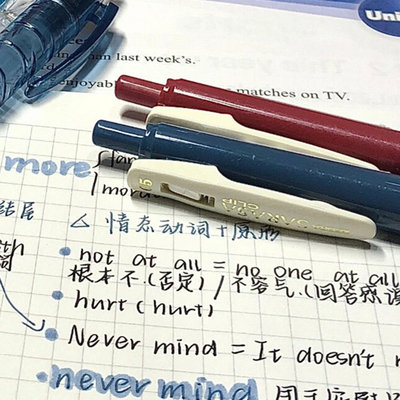 Uni
than last week's.
enjoyabl
matches on TV.
more
SARASA
CLIP
0.5
结尾
△ 情态动词+原形
th
词
• not at all = no one at all
根本不.(否定) / 不客气.(回答感谢
• hurt (hurt)
• Never mind = It doesn't
• never mind 用于